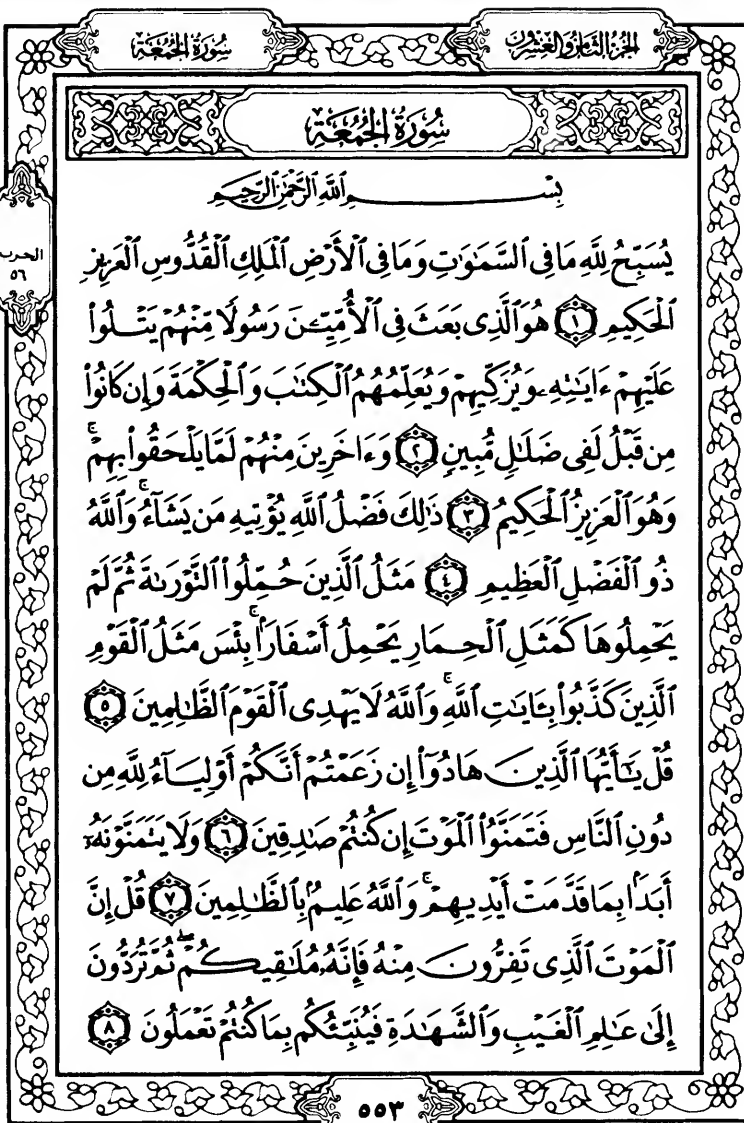 الجزء الثامن والعشرون
سُورَةُ الجُمُعَة
سُورَةُ الجُمُعَة
بِسْمِ ٱللَّهِ ٱلرَّحْمَٰنِ ٱلرَّحِيمِ
الحزب
٥٦
يُسَبِّحُ لِلَّهِ مَا فِى ٱلسَّمَٰوَٰتِ وَمَا فِى ٱلْأَرْضِ ٱلْمَلِكِ ٱلْقُدُّوسِ ٱلْعَزِيزِ
ٱلْحَكِيمِ ١ هُوَ ٱلَّذِى بَعَثَ فِى ٱلْأُمِّيِّـۧنَ رَسُولًا مِّنْهُمْ يَتْلُوا۟
عَلَيْهِمْ ءَايَٰتِهِۦ وَيُزَكِّيهِمْ وَيُعَلِّمُهُمُ ٱلْكِتَٰبَ وَٱلْحِكْمَةَ وَإِن كَانُوا۟
مِن قَبْلُ لَفِى ضَلَٰلٍ مُّبِينٍ ٢ وَءَاخَرِينَ مِنْهُمْ لَمَّا يَلْحَقُوا۟ بِهِمْ ۚ
وَهُوَ ٱلْعَزِيزُ ٱلْحَكِيمُ ٣ ذَٰلِكَ فَضْلُ ٱللَّهِ يُؤْتِيهِ مَن يَشَآءُ ۚ وَٱللَّهُ
ذُو ٱلْفَضْلِ ٱلْعَظِيمِ ٤ مَثَلُ ٱلَّذِينَ حُمِّلُوا۟ ٱلتَّوْرَىٰةَ ثُمَّ لَمْ
يَحْمِلُوهَا كَمَثَلِ ٱلْحِمَارِ يَحْمِلُ أَسْفَارًۢا ۚ بِئْسَ مَثَلُ ٱلْقَوْمِ
ٱلَّذِينَ كَذَّبُوا۟ بِـَٔايَٰتِ ٱللَّهِ ۚ وَٱللَّهُ لَا يَهْدِى ٱلْقَوْمَ ٱلظَّٰلِمِينَ ٥
قُلْ يَٰٓأَيُّهَا ٱلَّذِينَ هَادُوٓا۟ إِن زَعَمْتُمْ أَنَّكُمْ أَوْلِيَآءُ لِلَّهِ مِن
دُونِ ٱلنَّاسِ فَتَمَنَّوُا۟ ٱلْمَوْتَ إِن كُنتُمْ صَٰدِقِينَ ٦ وَلَا يَتَمَنَّوْنَهُۥٓ
أَبَدًۢا بِمَا قَدَّمَتْ أَيْدِيهِمْ ۚ وَٱللَّهُ عَلِيمٌۢ بِٱلظَّٰلِمِينَ ٧ قُلْ إِنَّ
ٱلْمَوْتَ ٱلَّذِى تَفِرُّونَ مِنْهُ فَإِنَّهُۥ مُلَٰقِيكُمْ ۖ ثُمَّ تُرَدُّونَ
إِلَىٰ عَٰلِمِ ٱلْغَيْبِ وَٱلشَّهَٰدَةِ فَيُنَبِّئُكُم بِمَا كُنتُمْ تَعْمَلُونَ ٨
٥٥٣